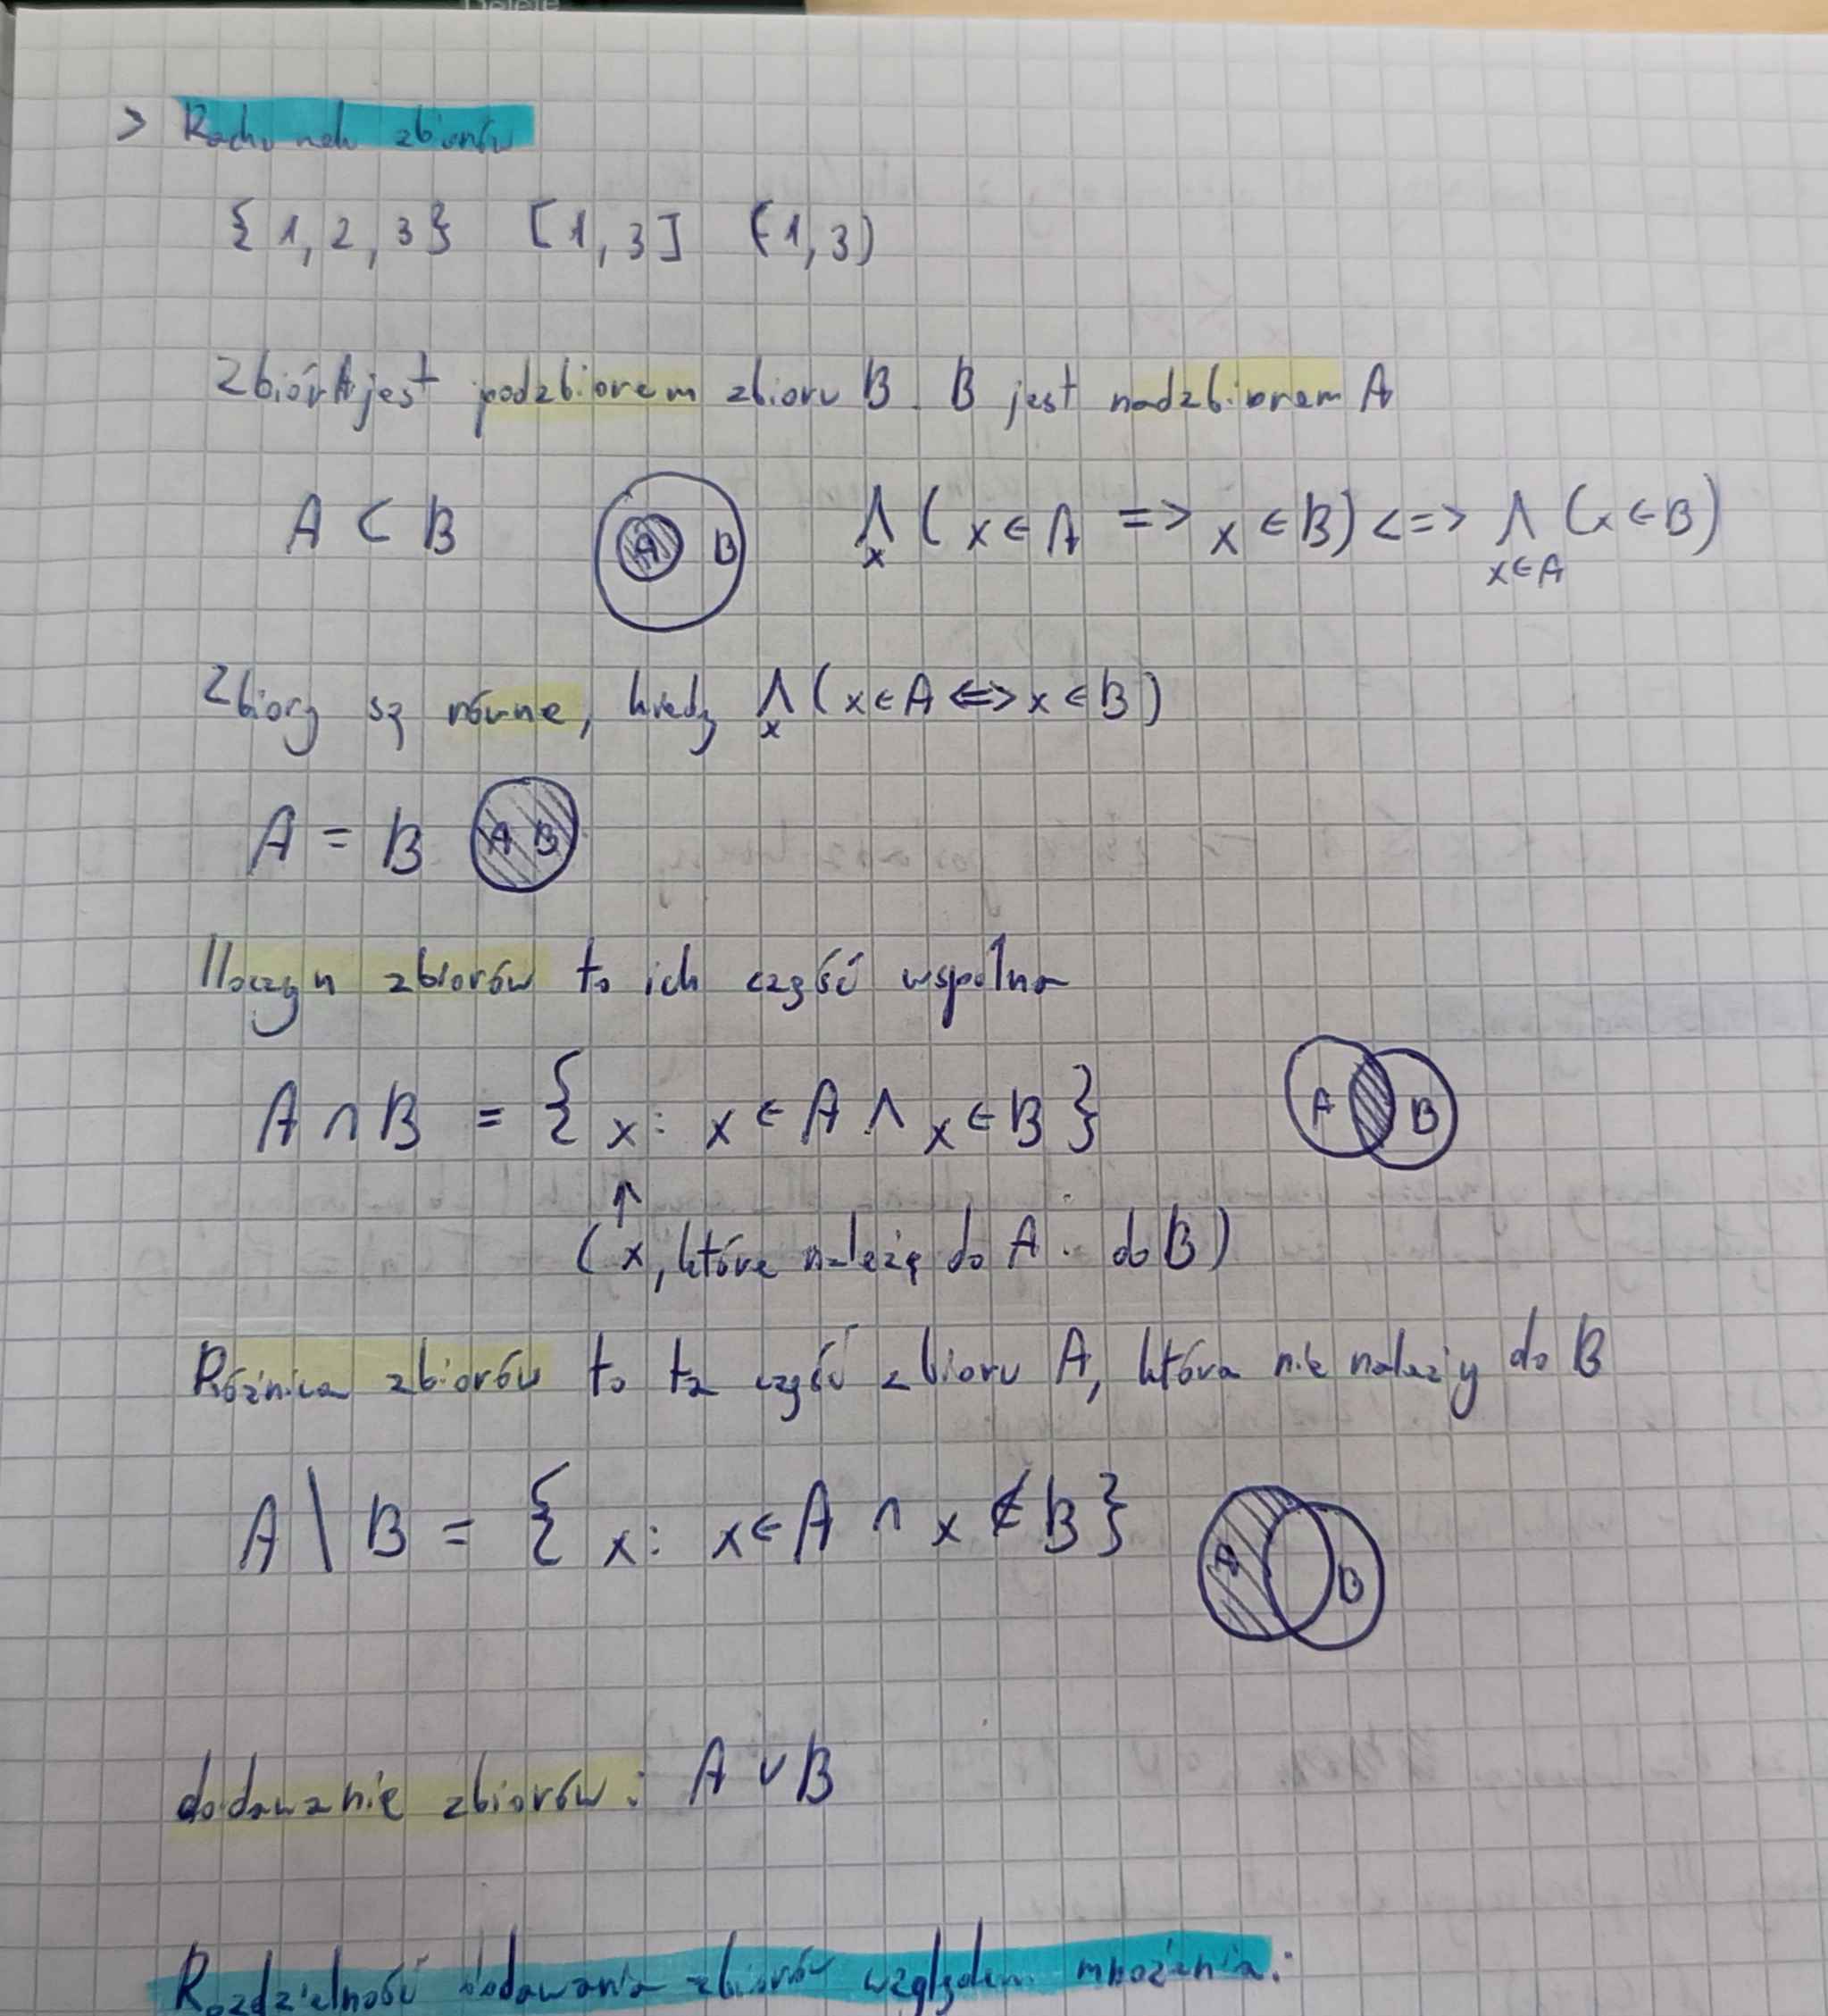 Delete
> Rachunek zbiorów
{1,2,3} [1,3] (1,3)
Zbiór A jest podzbiorem zbioru B. B jest nadzbiorem A
A ⊂ B A B ⋀x (x ∈ A => x ∈ B) <=> ⋀x∈A (x ∈ B)
Zbiory są równe, kiedy ⋀x (x ∈ A <=> x ∈ B)
A = B A B
Iloczyn zbiorów to ich część wspólna
A ∩ B = { x: x ∈ A ∧ x ∈ B } A B
↑
(x, które należą do A i do B)
Różnica zbiorów to ta część zbioru A, która nie należy do B
A \ B = { x: x ∈ A ∧ x ∉ B } A B
dodawanie zbiorów: A ∪ B
Rozdzielność dodawania zbiorów względem mnożenia: